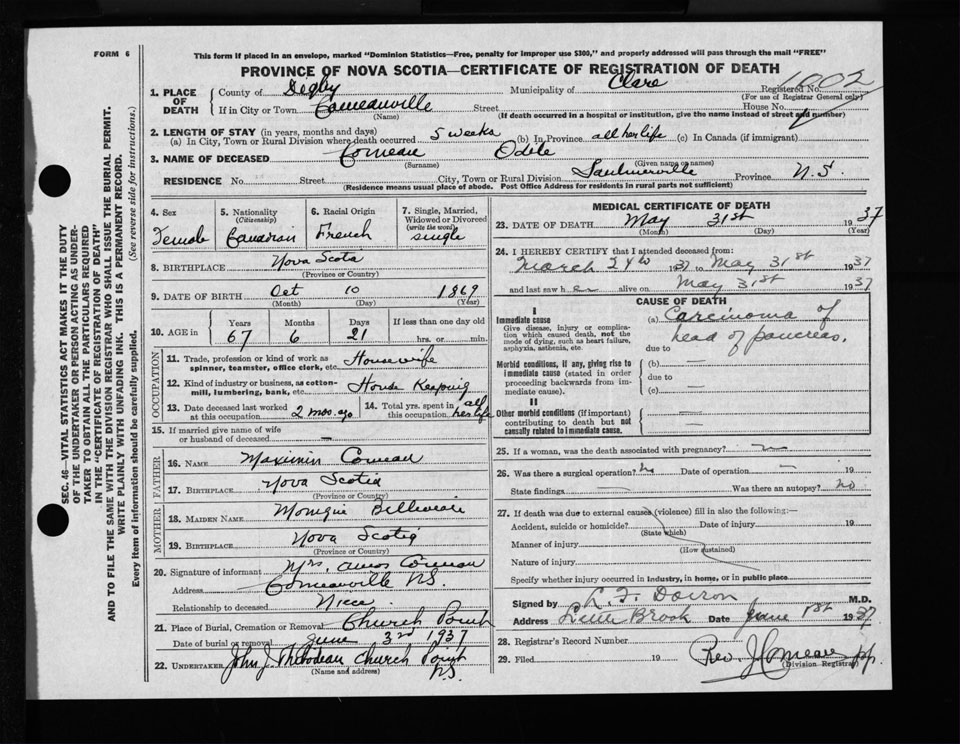 FORM 6
This form if placed in an envelope, marked "Dominion Statistics—Free, penalty for improper use $300," and properly addressed will pass through the mail "FREE"
PROVINCE OF NOVA SCOTIA—CERTIFICATE OF REGISTRATION OF DEATH
1. PLACE OF DEATH County of Digby Municipality of Clare Registered No. 1002
(For use of Registrar General only)
If in City or Town Comeauville Street House No.
(Name) (If death occurred in a hospital or institution, give the name instead of street and number)
2. LENGTH OF STAY (in years, months and days)
(a) In City, Town or Rural Division where death occurred 5 weeks (b) In Province all her life (c) In Canada (if immigrant)
3. NAME OF DECEASED Comeau Odile
(Surname) (Given name or names)
RESIDENCE No. Street City, Town or Rural Division Saulnierville Province N.S.
(Residence means usual place of abode. Post Office Address for residents in rural parts not sufficient)
4. Sex Female
5. Nationality (Citizenship) Canadian
6. Racial Origin French
7. Single, Married, Widowed or Divorced (write the word) single
8. BIRTHPLACE Nova Scotia
(Province or Country)
9. DATE OF BIRTH Oct 10 1869
(Month) (Day) (Year)
10. AGE in Years 67 Months 6 Days 21 If less than one day old hrs. or min.
OCCUPATION
11. Trade, profession or kind of work as spinner, teamster, office clerk, etc. Housewife
12. Kind of industry or business, as cotton-mill, lumbering, bank, etc. House Keeping
13. Date deceased last worked at this occupation 2 mos. ago
14. Total yrs. spent in this occupation all her life
15. If married give name of wife or husband of deceased —
FATHER
16. NAME Maximin Comeau
17. BIRTHPLACE Nova Scotia
(Province or Country)
MOTHER
18. MAIDEN NAME Monique Belliveau
19. BIRTHPLACE Nova Scotia
(Province or Country)
20. Signature of informant Mrs. Amos Comeau
Address Comeauville N.S.
Relationship to deceased Niece
21. Place of Burial, Cremation or Removal Church Point
Date of burial or removal June 3rd 1937
22. UNDERTAKER John J. Thibodeau Church Point N.S.
(Name and address)
MEDICAL CERTIFICATE OF DEATH
23. DATE OF DEATH May 31st 1937
(Month) (Day) (Year)
24. I HEREBY CERTIFY that I attended deceased from:
March 24th 1937 to May 31st 1937
and last saw her alive on May 31st 1937
CAUSE OF DEATH
I
Immediate cause
Give disease, injury or complication which caused death, not the mode of dying, such as heart failure, asphyxia, asthenia, etc.
(a) Carcinoma of head of pancreas.
due to
Morbid conditions, if any, giving rise to immediate cause (stated in order proceeding backwards from immediate cause).
(b) —
due to
(c) —
II
Other morbid conditions (if important) contributing to death but not causally related to immediate cause. —
25. If a woman, was the death associated with pregnancy? no
26. Was there a surgical operation? no Date of operation — 19
State findings — Was there an autopsy? no
27. If death was due to external causes (violence) fill in also the following:—
Accident, suicide or homicide? Date of injury 19
(State which)
Manner of injury
(How sustained)
Nature of injury
Specify whether injury occurred in industry, in home, or in public place
Signed by L. F. Doiron M.D.
Address Little Brook Date June 1st 1937
28. Registrar's Record Number
29. Filed 19 Rev. J. Comeau pp.
(Division Registrar)
SEC. 46—VITAL STATISTICS ACT MAKES IT THE DUTY
OF THE UNDERTAKER OR PERSON ACTING AS UNDER-
TAKER TO OBTAIN ALL THE PARTICULARS REQUIRED
IN THE "CERTIFICATE OF REGISTRATION OF DEATH"
AND TO FILE THE SAME WITH THE DIVISION REGISTRAR WHO SHALL ISSUE THE BURIAL PERMIT.
WRITE PLAINLY WITH UNFADING INK. THIS IS A PERMANENT RECORD.
Every item of information should be carefully supplied. (See reverse side for instructions.)